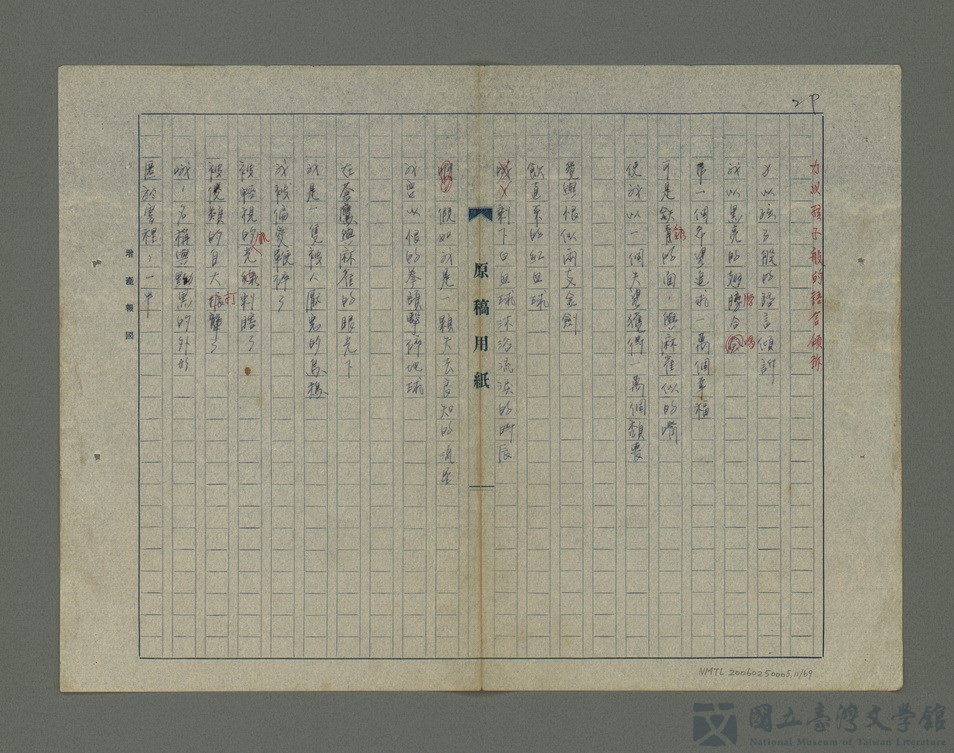 2P
力以孩子般的語言傾訴
以孩子般的語言傾訴
我以黑亮的翅膀合
第一個失望追求一萬個幸福
可是飲食的面,與麻雀似的嘴
使我以一個失望獲得一萬個
愛與恨似兩支金劍
飲直系的紅血球
我 剩下白血球沐浴流淚的時辰
假如我是一顆失去良知的流星
我要以恨的拳頭擊碎地球
在蒼鷹與麻雀的眼光下
我是一隻被人厭惡的烏鴉
我被偏愛鞭碎了
被輕視的光線刺瞎了
被攪類的自大打聾了
我,名稱與黝黑的外形
匿於雲裡,一半
原稿用紙
增產報國
NMTL20060250005,11/69
國立臺灣文學館
National Museum of Taiwan Literature